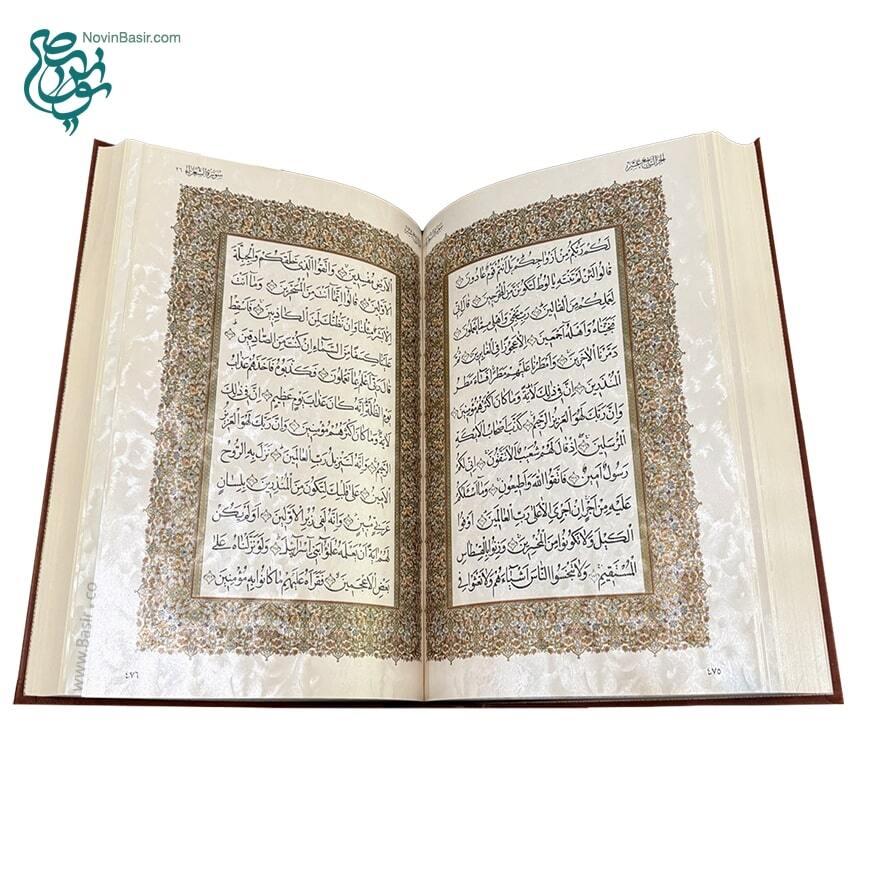 NovinBasir.com
الجزء التاسع عشر
لَكُمْ رَبُّكُمْ مِنْ أَزْوَاجِكُمْ بَلْ أَنْتُمْ قَوْمٌ عَادُونَ
قَالُوا لَئِنْ لَمْ تَنْتَهِ يَا لُوطُ لَتَكُونَنَّ مِنَ الْمُخْرَجِينَ قَالَ إِنِّي
لِعَمَلِكُمْ مِنَ الْقَالِينَ رَبِّ نَجِّنِي وَأَهْلِي مِمَّا يَعْمَلُونَ
فَنَجَّيْنَاهُ وَأَهْلَهُ أَجْمَعِينَ إِلَّا عَجُوزًا فِي الْغَابِرِينَ ثُمَّ
دَمَّرْنَا الْآخَرِينَ وَأَمْطَرْنَا عَلَيْهِمْ مَطَرًا فَسَاءَ مَطَرُ
الْمُنْذَرِينَ إِنَّ فِي ذَلِكَ لَآيَةً وَمَا كَانَ أَكْثَرُهُمْ مُؤْمِنِينَ
وَإِنَّ رَبَّكَ لَهُوَ الْعَزِيزُ الرَّحِيمُ كَذَّبَ أَصْحَابُ الْأَيْكَةِ
الْمُرْسَلِينَ إِذْ قَالَ لَهُمْ شُعَيْبٌ أَلَا تَتَّقُونَ إِنِّي لَكُمْ
رَسُولٌ أَمِينٌ فَاتَّقُوا اللَّهَ وَأَطِيعُونِ وَمَا أَسْأَلُكُمْ
عَلَيْهِ مِنْ أَجْرٍ إِنْ أَجْرِيَ إِلَّا عَلَى رَبِّ الْعَالَمِينَ أَوْفُوا
الْكَيْلَ وَلَا تَكُونُوا مِنَ الْمُخْسِرِينَ وَزِنُوا بِالْقِسْطَاسِ
الْمُسْتَقِيمِ وَلَا تَبْخَسُوا النَّاسَ أَشْيَاءَهُمْ وَلَا تَعْثَوْا فِي
٤٧٥
سورة الشعراء ٢٦
الْأَرْضِ مُفْسِدِينَ وَاتَّقُوا الَّذِي خَلَقَكُمْ وَالْجِبِلَّةَ
الْأَوَّلِينَ قَالُوا إِنَّمَا أَنْتَ مِنَ الْمُسَحَّرِينَ وَمَا أَنْتَ
إِلَّا بَشَرٌ مِثْلُنَا وَإِنْ نَظُنُّكَ لَمِنَ الْكَاذِبِينَ فَأَسْقِطْ
عَلَيْنَا كِسَفًا مِنَ السَّمَاءِ إِنْ كُنْتَ مِنَ الصَّادِقِينَ
قَالَ رَبِّي أَعْلَمُ بِمَا تَعْمَلُونَ فَكَذَّبُوهُ فَأَخَذَهُمْ عَذَابُ
يَوْمِ الظُّلَّةِ إِنَّهُ كَانَ عَذَابَ يَوْمٍ عَظِيمٍ إِنَّ فِي ذَلِكَ
لَآيَةً وَمَا كَانَ أَكْثَرُهُمْ مُؤْمِنِينَ وَإِنَّ رَبَّكَ لَهُوَ الْعَزِيزُ
الرَّحِيمُ وَإِنَّهُ لَتَنْزِيلُ رَبِّ الْعَالَمِينَ نَزَلَ بِهِ الرُّوحُ
الْأَمِينُ عَلَى قَلْبِكَ لِتَكُونَ مِنَ الْمُنْذِرِينَ بِلِسَانٍ
عَرَبِيٍّ مُبِينٍ وَإِنَّهُ لَفِي زُبُرِ الْأَوَّلِينَ أَوَلَمْ يَكُنْ
لَهُمْ آيَةً أَنْ يَعْلَمَهُ عُلَمَاءُ بَنِي إِسْرَائِيلَ وَلَوْ نَزَّلْنَاهُ عَلَى
بَعْضِ الْأَعْجَمِينَ فَقَرَأَهُ عَلَيْهِمْ مَا كَانُوا بِهِ مُؤْمِنِينَ
٤٧٦
www.Basir.co